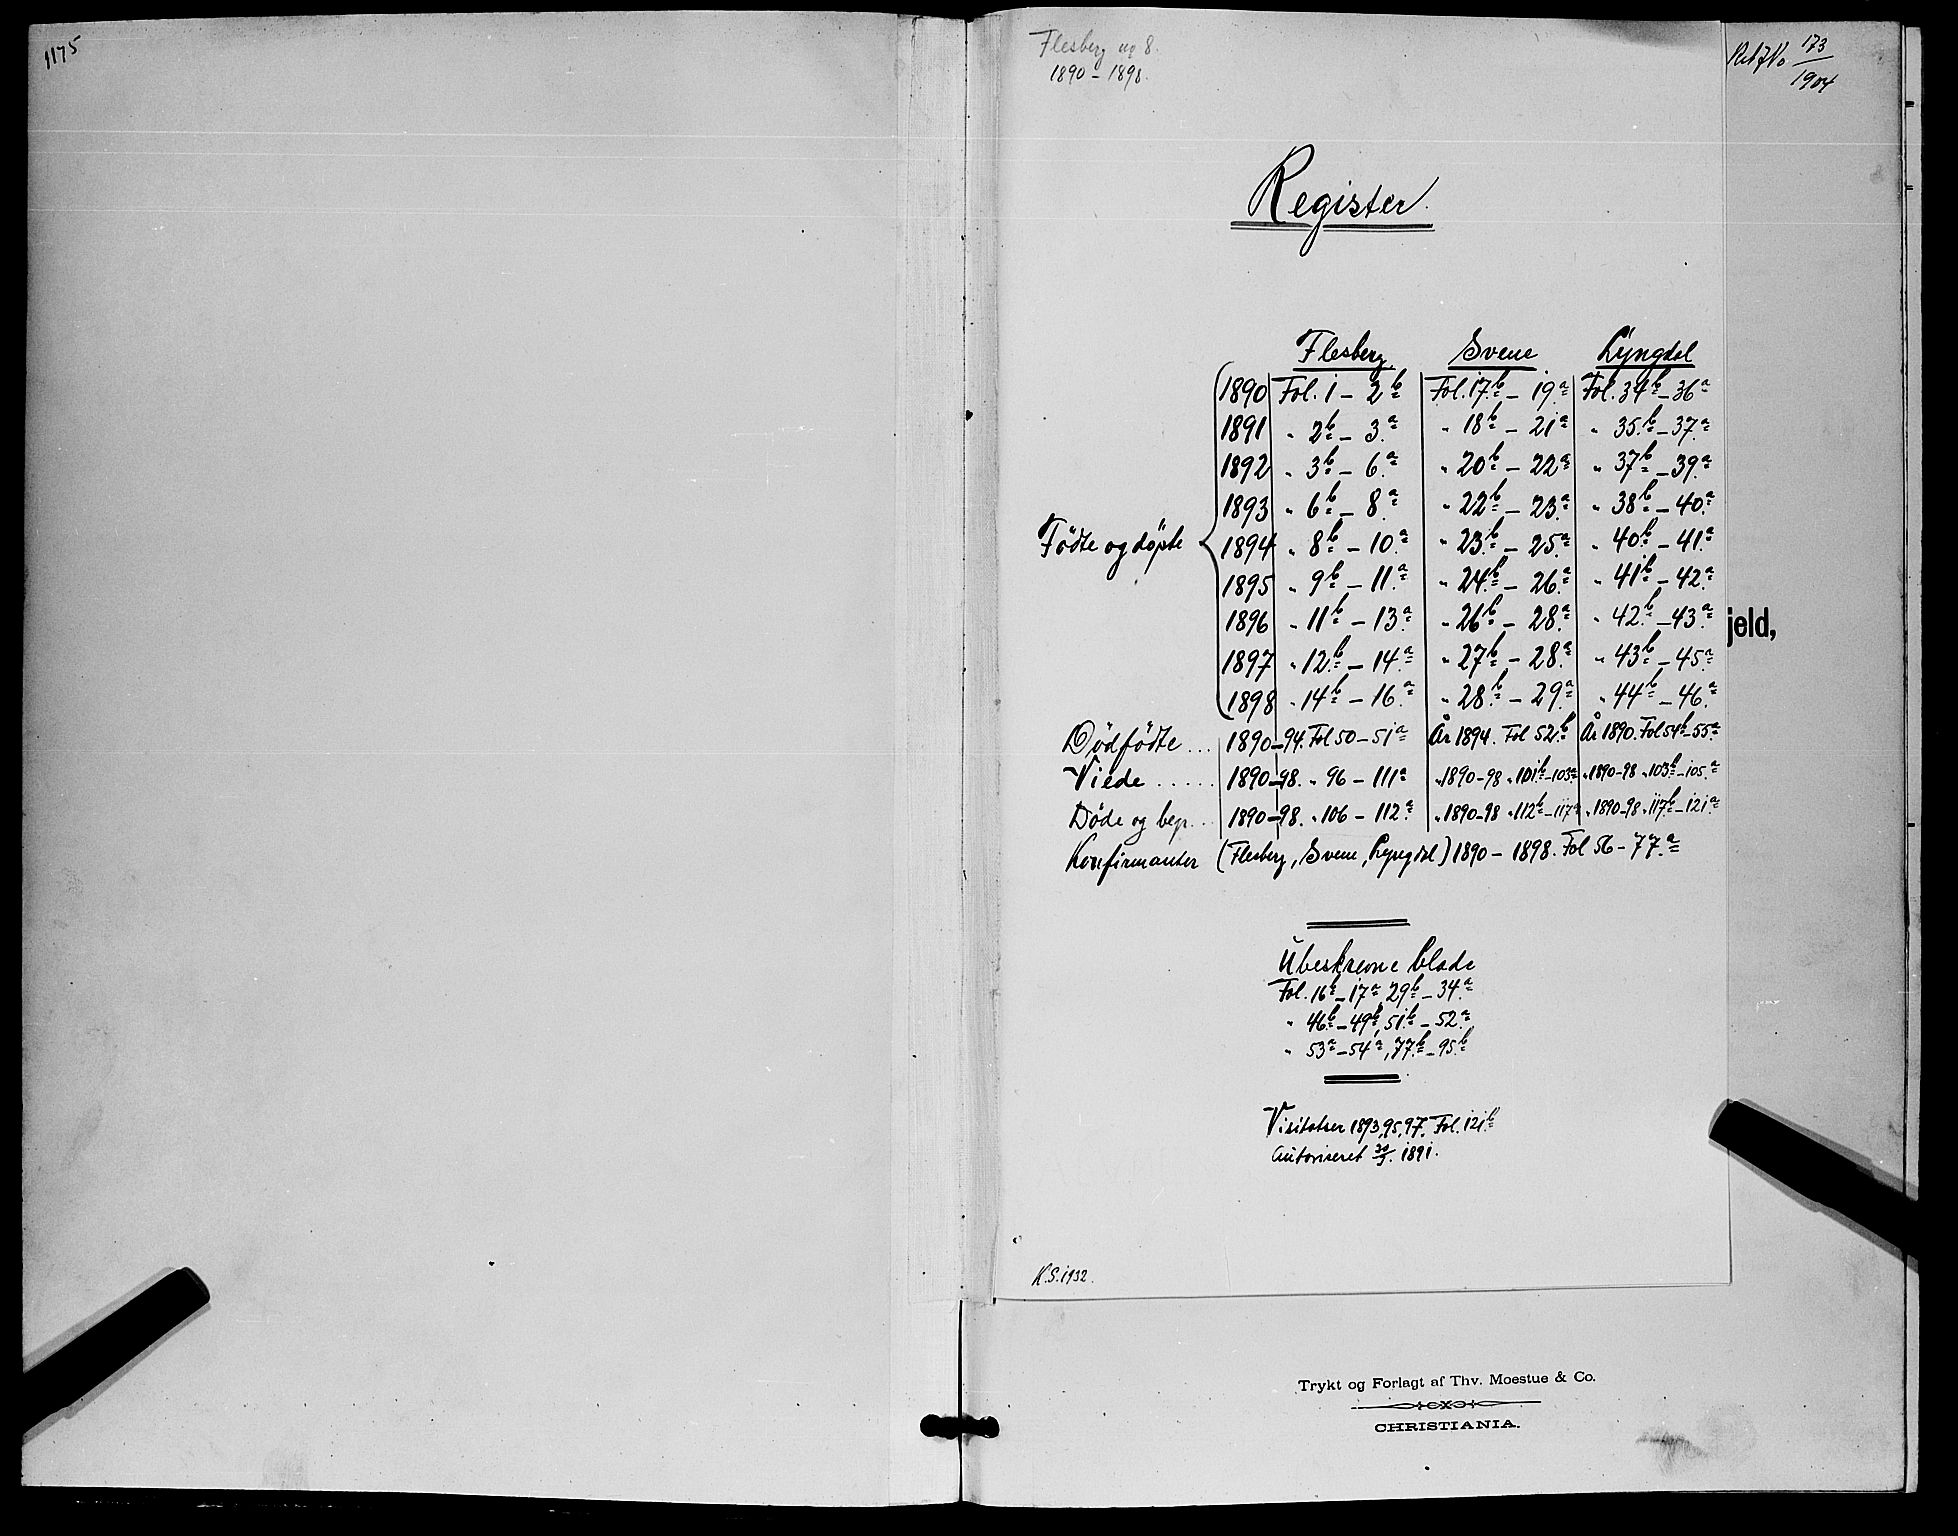 1175
Flesberg 8.
1890 - 1898.
173
1904
Register.
Flesberg Svene Lyngdal
1890 Fol. 1 - 2b Fol. 17b - 19a Fol. 34b - 36a
1891 " 2b - 3a " 18b - 21a " 35b - 37a
1892 " 3b - 6a " 20b - 22a " 37b - 39a
1893 " 6b - 8a " 22b - 23a " 38b - 40a
Födte og döpte 1894 " 8b - 10a " 23b - 25a " 40b - 41a
1895 " 9b - 11a " 24b - 26a " 41b - 42a
1896 " 11b - 13a " 26b - 28a " 42b - 43a
jeld,
1897 " 12b - 14a " 27b - 28a " 43b - 45a
1898 " 14b - 16a " 28b - 29a " 44b - 46a
Dödfödte ... 1890-94. Fol 50 - 51a År 1894. Fol 52b År 1890. Fol 54b - 55a
Viede ..... 1890-98. " 96 - 111a " 1890-98 " 101b - 103a " 1890-98 " 103b - 105a
Döde og begr. .. 1890-98. " 106 - 112a " 1890-98 " 112b - 117a " 1890-98 " 117b - 121a
Konfirmanter (Flesberg, Svene, Lyngdal) 1890 - 1898. Fol 56 - 77a
Ubeskrevne blade
Fol. 16b - 17a, 29b - 34a
" 46b - 49b, 51b - 52a
" 53a - 54a, 77b - 95b
Visitatser 1893, 95, 97. Fol. 121b
Autoriseret 30/3. 1891.
K.S. 1932.
Trykt og Forlagt af Thv. Moestue & Co.
CHRISTIANIA.